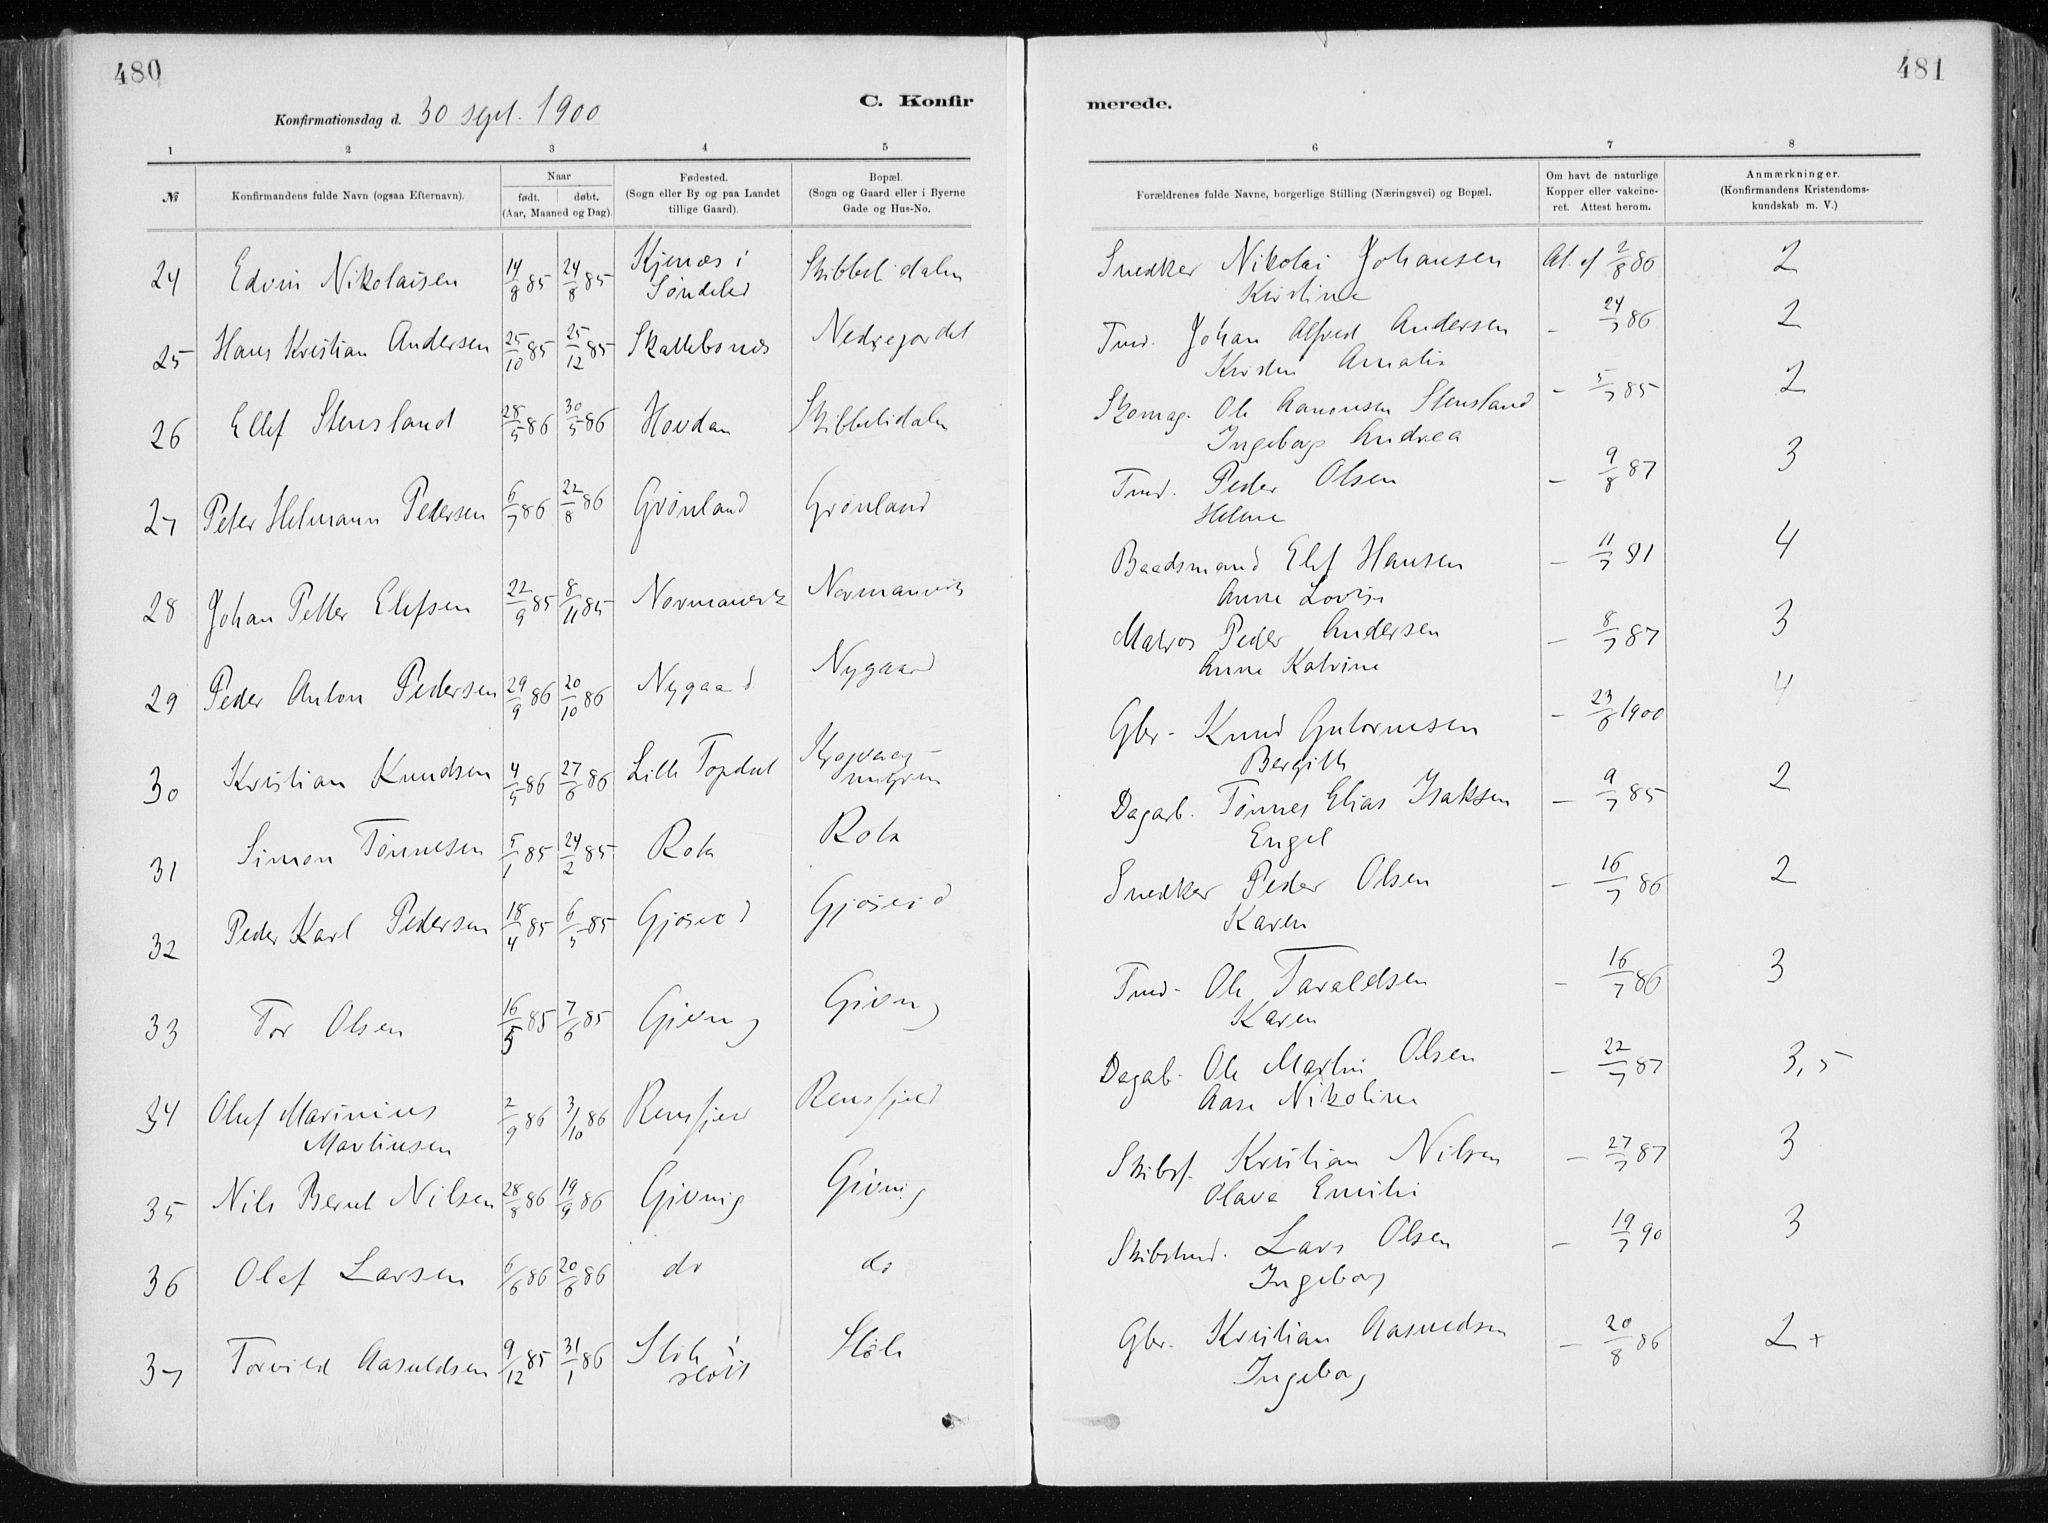 480
481
C. Konfirmerede.
Konfirmationsdag d. 30 sept. 1900
1 2 3 4 5 6 7 8
№
Konfirmandens fulde Navn (ogsaa Efternavn).
Naar
født. døbt.
(Aar, Maaned og Dag).
Fødested.
(Sogn eller By og paa Landet
tillige Gaard).
Bopæl.
(Sogn og Gaard eller i Byerne
Gade og Hus-No.
Forældrenes fulde Navne, borgerlige Stilling (Næringsvei) og Bopæl.
Om havt de naturlige
Kopper eller vakcine-
ret. Attest herom.
Anmærkninger.
(Konfirmandens Kristendoms-
kundskab m. V.)
24 Edvin Nikolaisen 14/8 85 24/8 85 Kjenæs i Skibbelidalen Snedker Nikolai Johansen At. af 2/8 86 2
Søndeled Kristine
25 Hans Kristian Andersen 25/10 85 25/12 85 Nedregardet Tmd. Johan Alfred Andersen - 24/7 86 2
Amalia
26 Ellef Stensland 28/5 86 30/5 86 Hovdan Skibbelidalen Skomag. Ole Aanonsen Stensland - 5/7 85 2
Ingeborg Andrea
27 Peter Helmann Pedersen 6/7 86 22/8 86 Grønland Grønland Tmd. Peder Olsen - 9/8 87 3
Helene
28 Johan Petter Elefsen 22/9 85 8/11 85 Normanvik Normanvik Baadsmand Elef Hansen - 11/7 91 4
Anne Lovise
29 Peder Anton Pedersen 29/9 86 20/10 86 Nygaard Nygaard Matros Peder Andersen - 8/7 87 3
Anne Katrine
30 Kristian Knudsen 4/5 86 27/6 86 Lille Topdal Gbr. Knud Gutormsen - 23/8 1900 4
Bergitte
31 Simon Tønnesen 5/1 85 24/2 85 Rota Rota Dagarb. Tønnes Elias Isaksen - 9/7 85 2
Engel
32 Peder Karl Pedersen 18/4 85 6/5 85 Gjøseid Gjøseid Snedker Peder Olsen - 16/7 86 2
Karen
33 Tor Olsen 16/5 85 7/6 85 Givning Givning Tmd. Ole Taraldsen - 16/7 86 3
Karen
34 Oluf Marinius 2/9 86 3/10 86 Rensfjed Rensfjed Dagarb. Ole Martin Olsen - 22/7 87 3,5
Martinsen Aase Nikoline
35 Nils Bernt Nilsen 28/8 86 19/9 86 Givning Givning Skibsf. Kristian Nilsen - 27/7 87 3
Olava Emilie
36 Olaf Larsen 6/6 86 20/6 86 do do Skibstmd. Lars Olsen - 19/7 90 3
Ingeborg
37 Torvild Aasuldsen 9/12 85 31/1 86 Støle Støle Gbr. Kristian Aasuldsen - 20/8 86 2+
Ingeborg